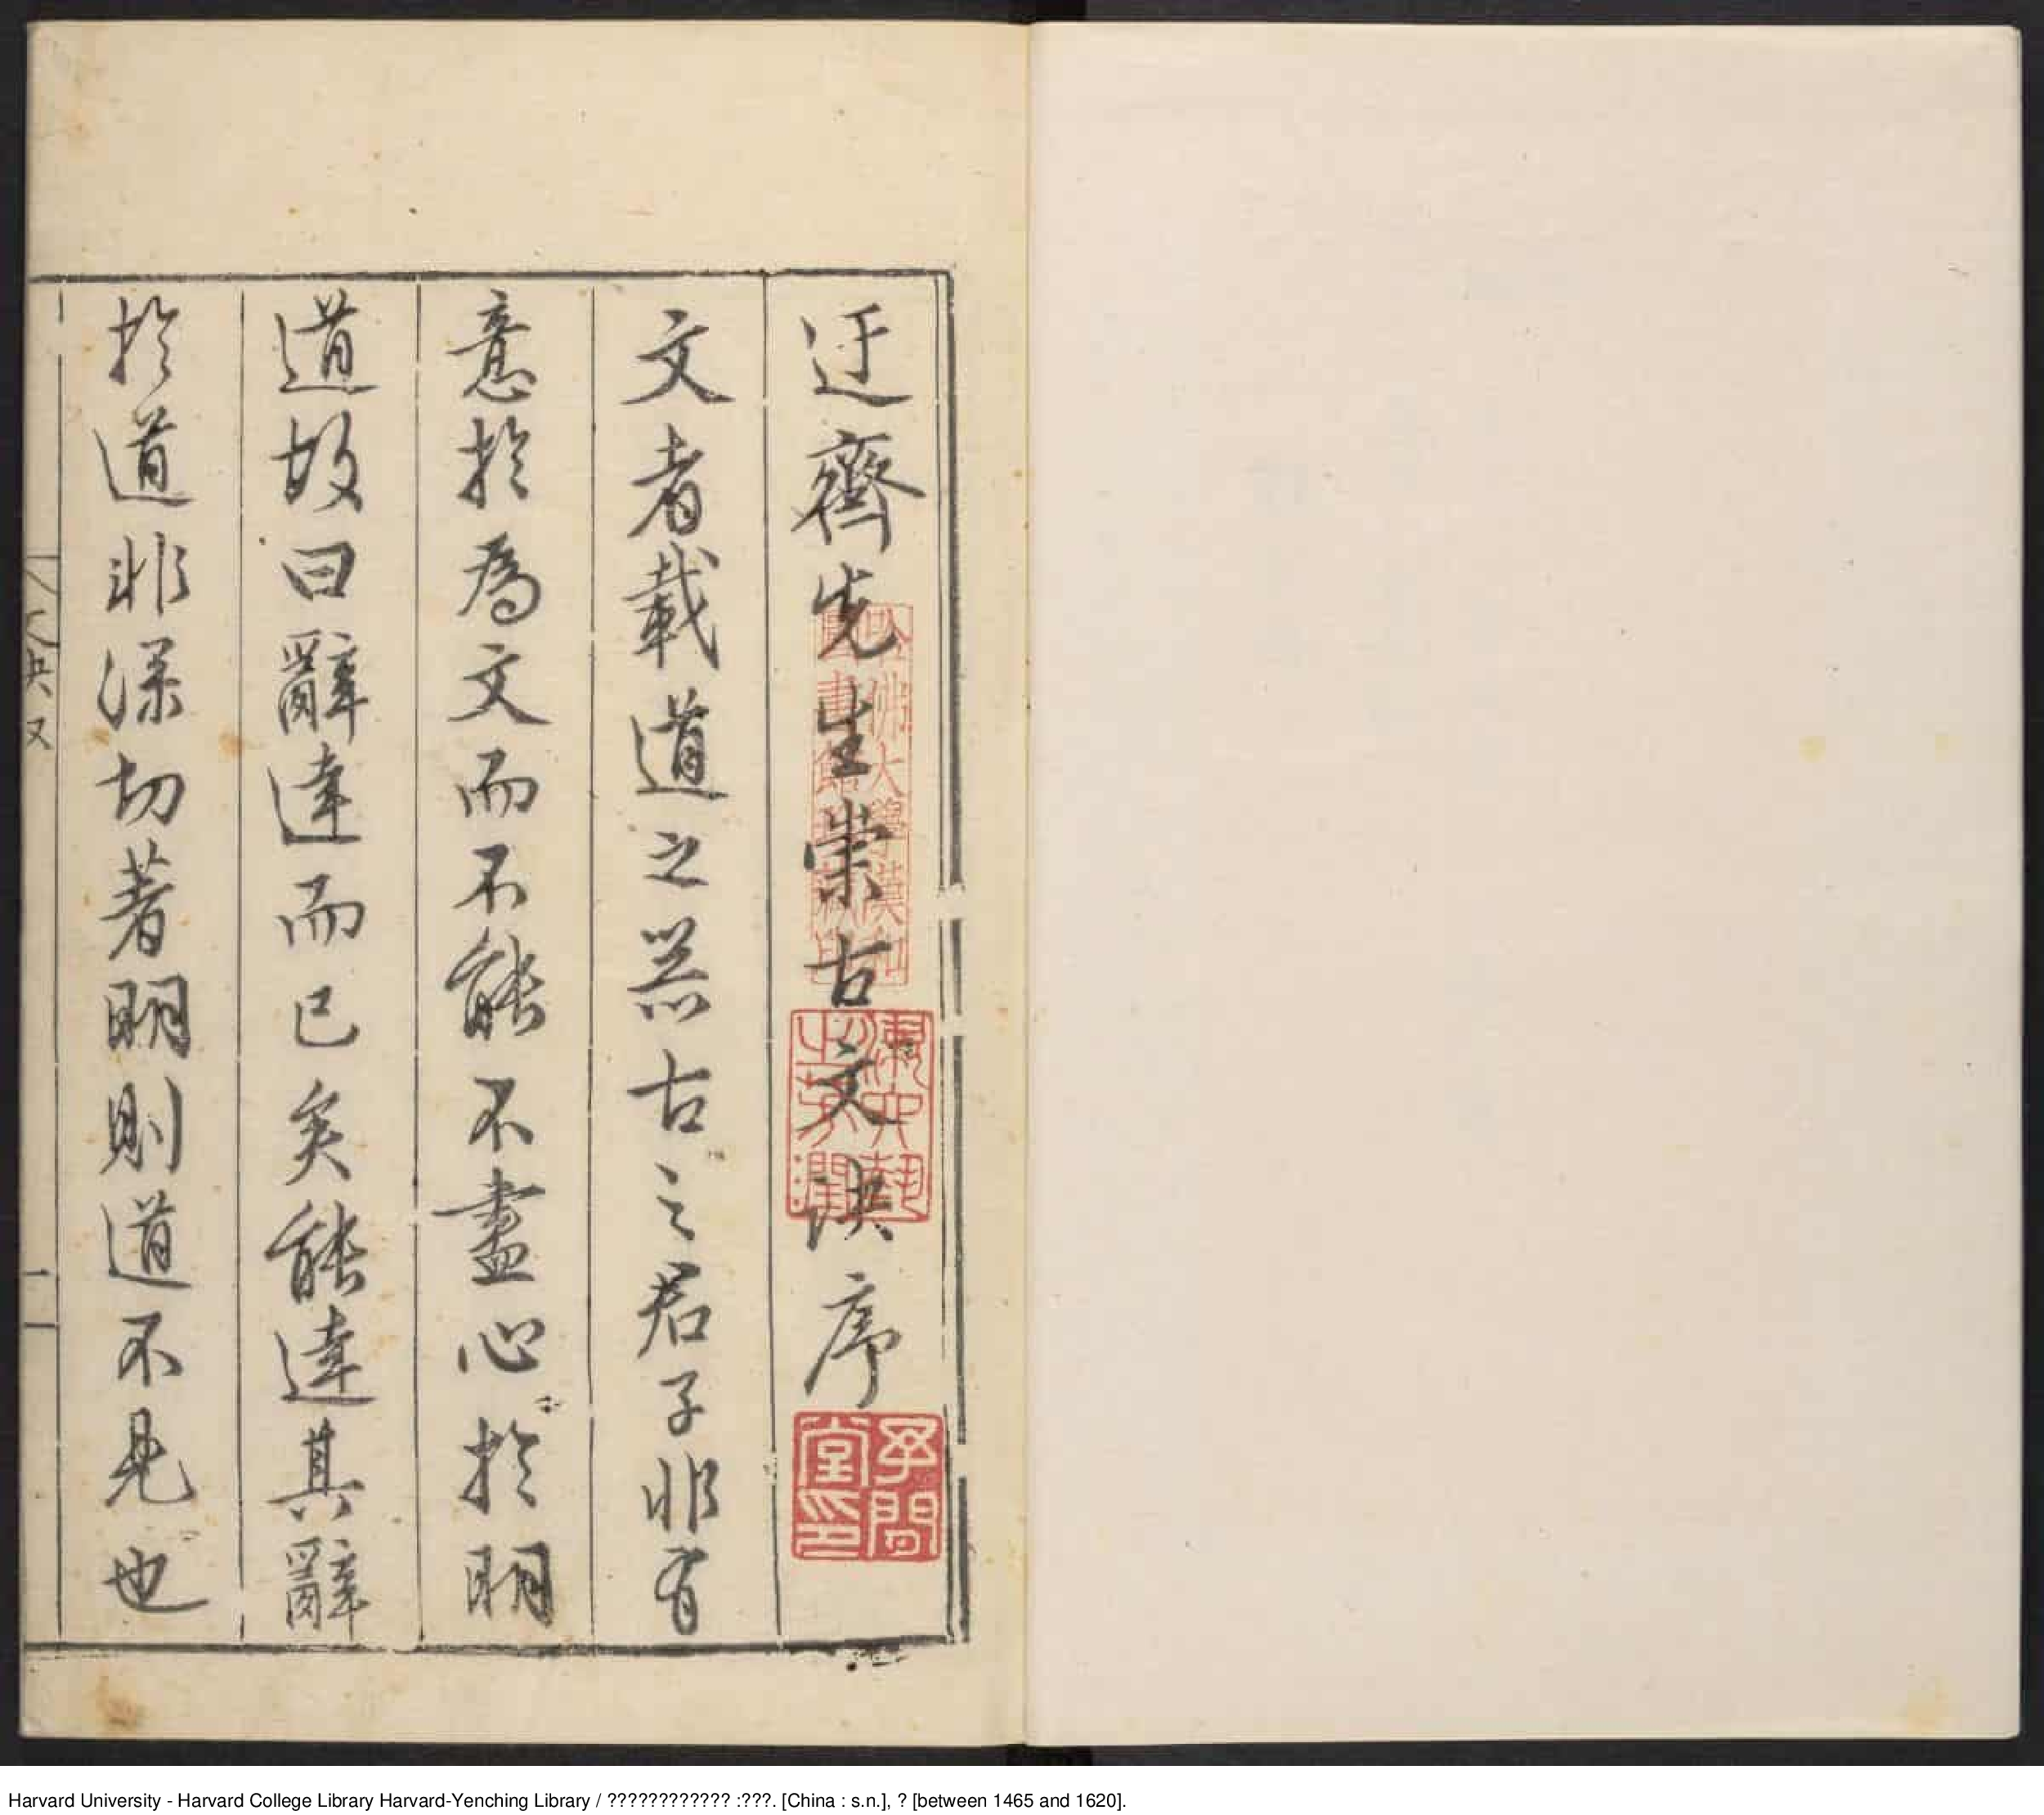 迂齋先生崇古文訣序
文者載道之器古之君子非有
意於為文而不能不盡心於明
道故曰辭達而已矣能達其辭
於道非深切著明則道不見也
哈佛大學漢和
圖書館珍藏印
學間
堂印
Harvard University - Harvard College Library Harvard-Yenching Library / ???????????? :???. [China : s.n.], ? [between 1465 and 1620].